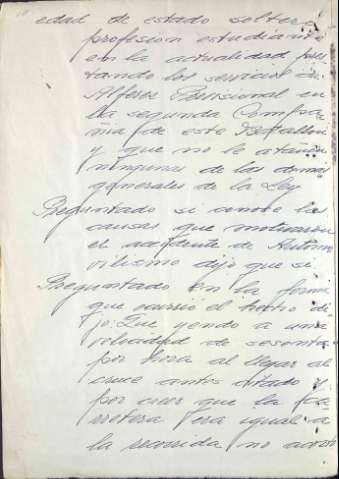 edad de estado soltero
profesion estudiante
en la actualidad pres
tando los servicios de
Alferez Provisional en
la segunda Compa
ñia de este Batallon
y que no le atañen
ningunas de las demas
generales de la Ley
Preguntado si conoce las
causas que motivaron
el accidente de Automo
vilismo dijo que si
Preguntado en la forma
que ocurrió el hecho di
jo: Que yendo a una
velocidad de sesenta
por hora al llegar al
cruce antes citado y
por creer que la ca
rretera era igual a
la recorrida no